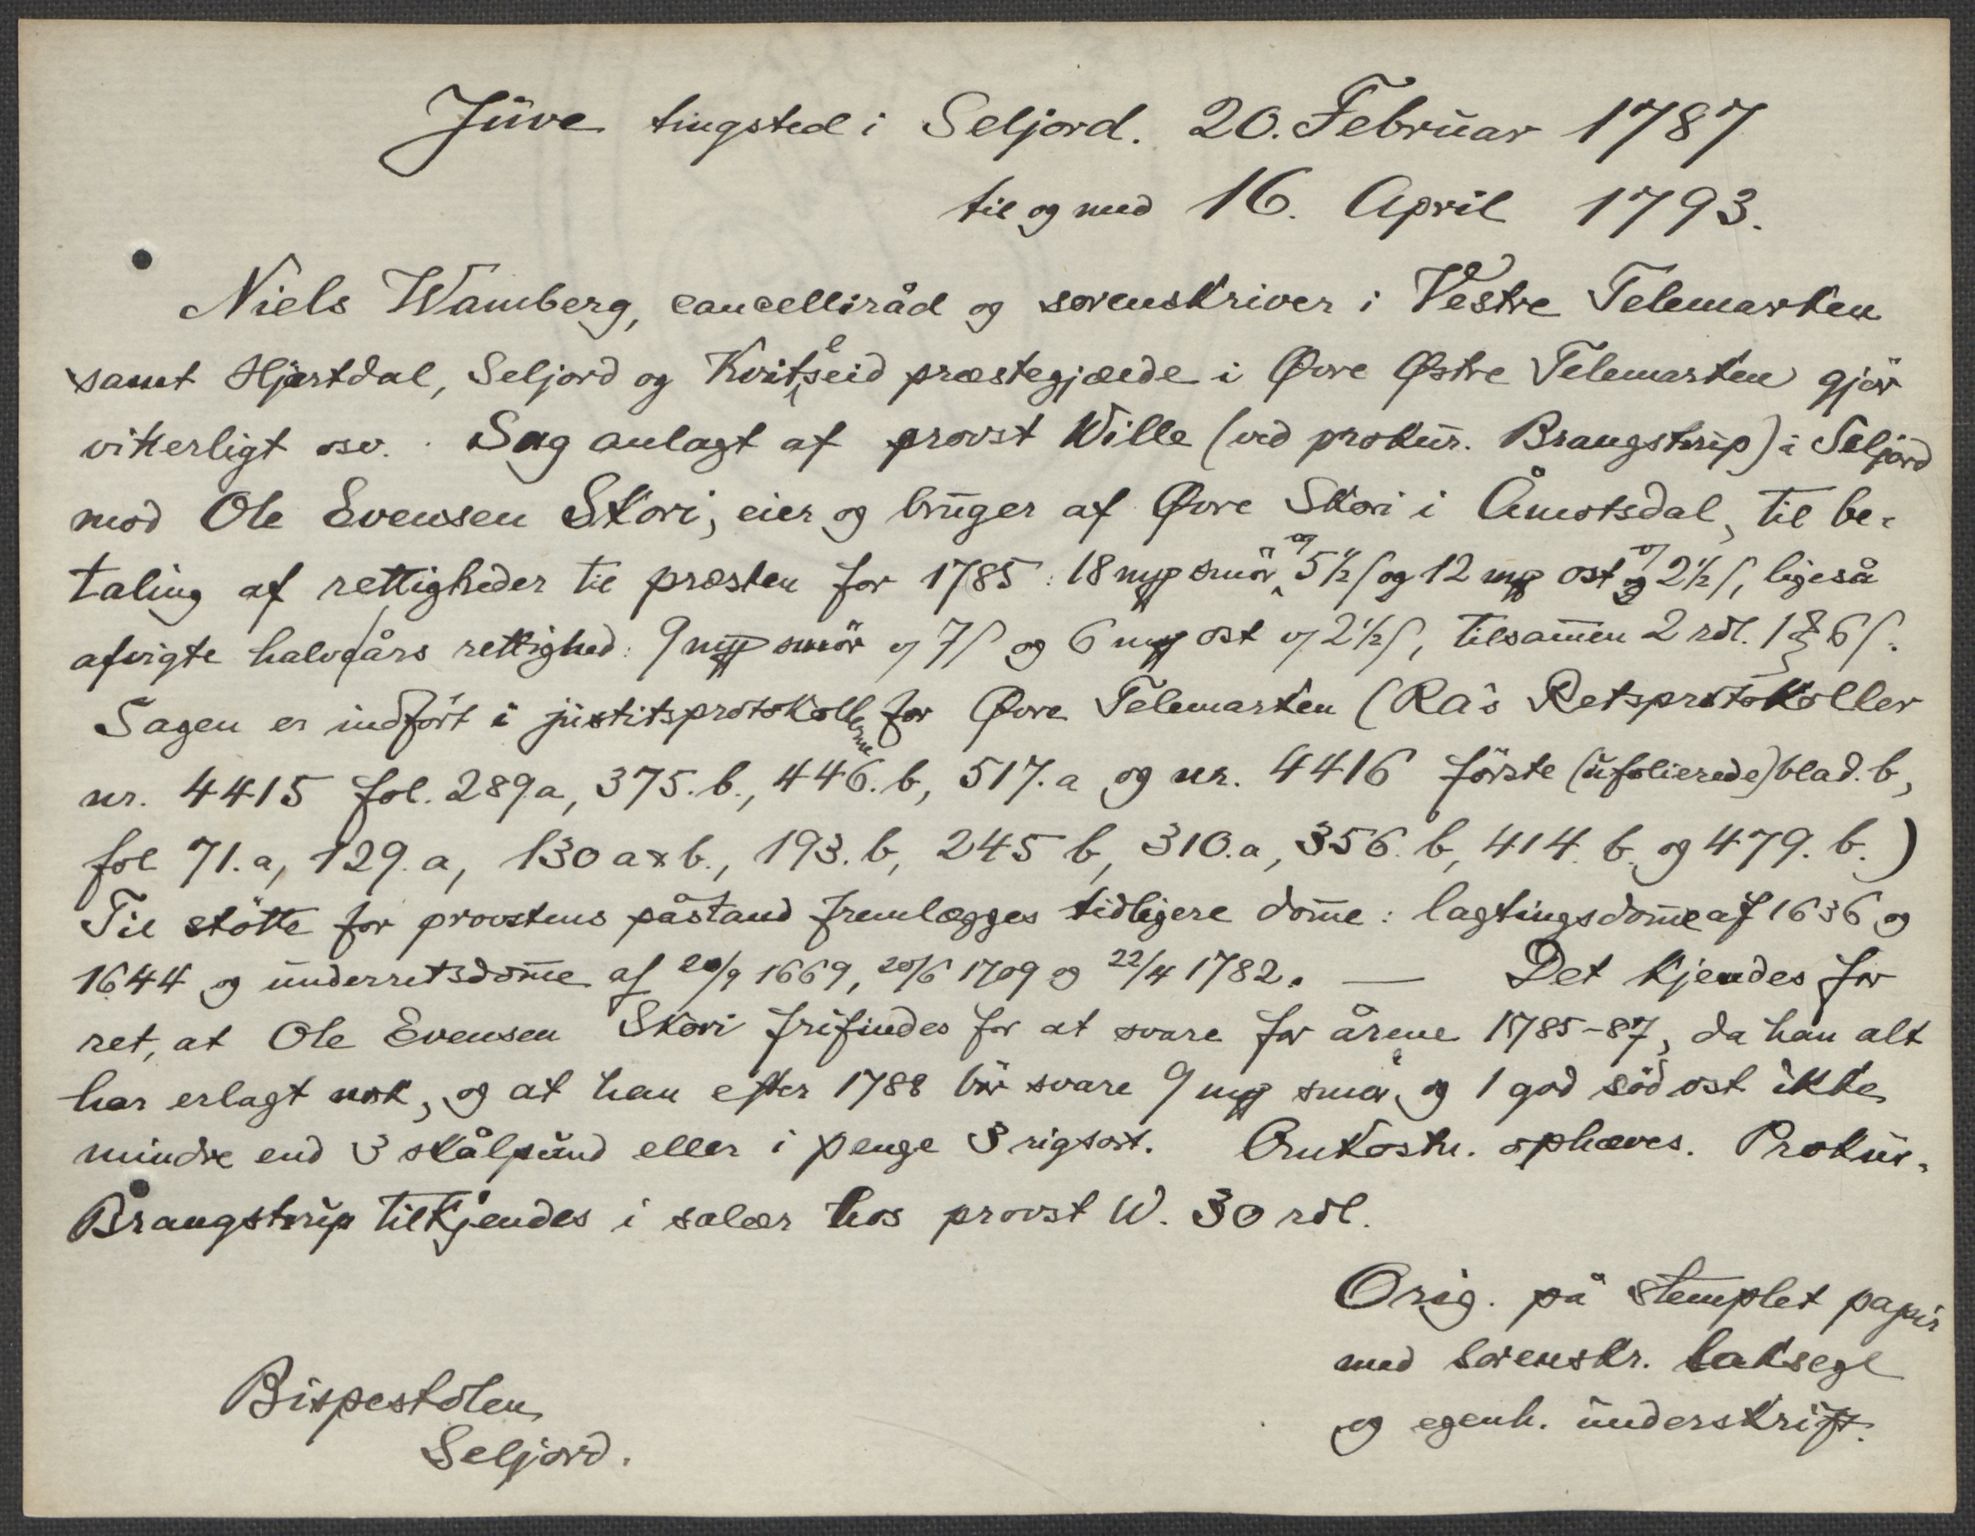 Juve tingsted i Seljord. 20. Februar 1787
til og med 16. April 1793.
Niels Wamberg, cancelliråd og sorenskriver i Vestre Telemarken
samt Hjartdal, Seljord og Kviteseid præstegjælde i Øvre Østre Telemarken gjör
vitterligt osv. Sag anlagt af provst Wille (ved prokur. Brangstrup) i Seljord
mod Ole Evensen Skori, eier og bruger af Øvre Skori i Åmotsdal, til be-
taling af rettigheder til præsten for 1785: 18 mp smör og 5 1/2 ſ og 12 mp ost og 2 1/2 ſ, ligeså
afvigte halvårs rettighed: 9 mp smör og 7 ſ og 6 mp ost og 2 1/2 ſ, tilsam̄en 2 rdl. 1 6 ſ.
Sagen er indfört i justitsprotokollerne for Øvre Telemarken (Ra's Retsprotokoller
nr. 4415 fol. 289a, 375.b., 446.b, 517.a og nr. 4416 förste (ufolierede) blad.b,
fol 71.a, 129.a, 130 a & b., 193.b, 245 b, 310.a, 356.b, 414.b. og 479.b.)
Til stötte for provstens påstand fremlægges tidligere dom̄e: lagtingsdom̄e af 1636 og
1644 og underretsdom̄e af 20/9 1669, 20/6 1709 og 22/4 1782. — Det kjendes for
ret, at Ole Evensen Skori frifindes for at svare for årene 1785-87, da han alt
har erlagt nok, og at han efter 1788 bör svare 9 mp smör og 1 god söd ost ikke
mindre end 3 skålpund eller i penge 3 rigsort. Omkostn. ophæves. Prokur.
Brangstrup tilkjendes i salær hos provst W. 30 rdl.
Orig. på stemplet papir
med sorenskr. laksegl
og egenh. underskrift.
Bispestolen
Seljord.